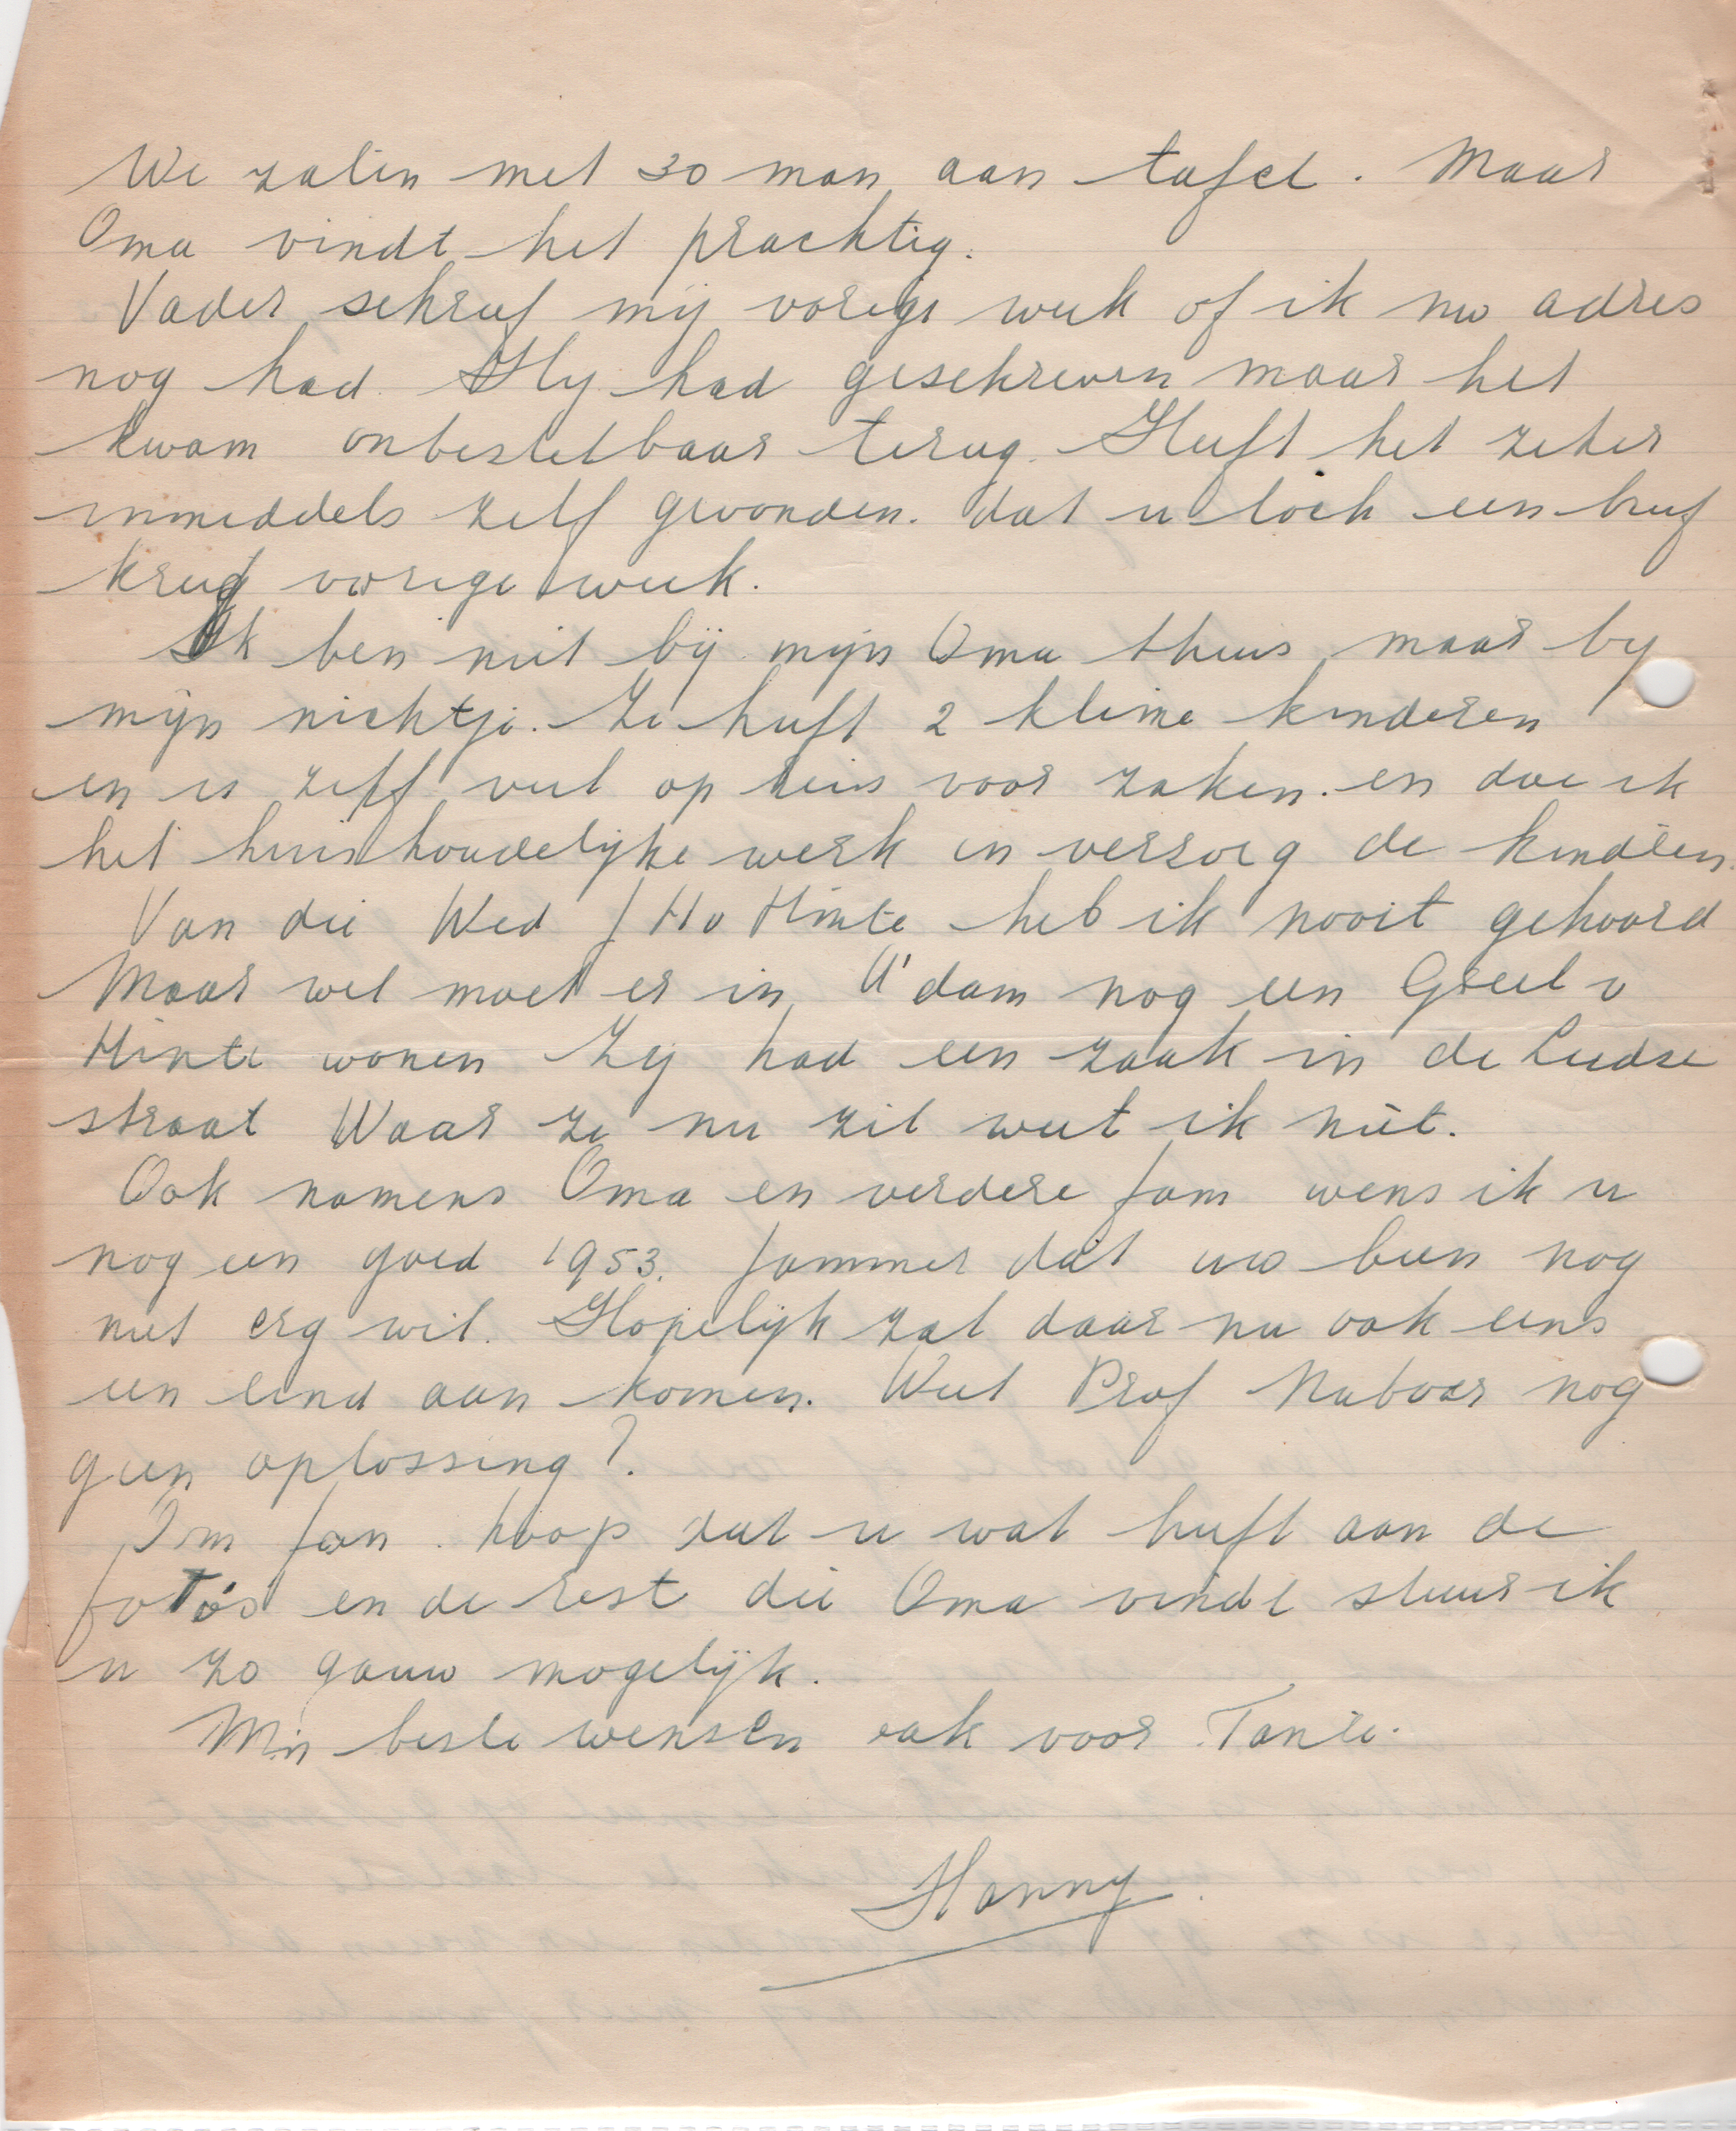 We zaten met 30 man aan tafel. Maar
Oma vindt het prachtig.
Vader schreef mij vorige week of ik uw adres
nog had. Hij had geschreven maar het
kwam onbestelbaar terug. Heeft het zeker
inmiddels zelf gevonden. dat u toch een brief
kreeg vorige week.
Ik ben niet bij mijn Oma thuis maar by
mijn nichtje. Ze heeft 2 kleine kinderen
en is zelf veel op reis voor zaken. en doe ik
het huishoudelijke werk en verzorg de kinderen.
Van die Wed J H v Hinte heb ik nooit gehoord
Maar wel moet er in A'dam nog een Greet v
Hinte wonen Zij had een zaak in de Leidse
straat Waar ze nu zit weet ik niet.
Ook namens Oma en verdere fam wens ik u
nog een goed 1953. Jammer dat uw been nog
niet erg wil. Hopelijk zal daar nu ook eens
een eind aan komen. Weet Prof Naboar nog
geen oplossing?.
Om Jan. hoop dat u wat heeft aan de
foto's en de rest die Oma vindt stuur ik
u zo gauw mogelijk.
Mijn beste wensen ook voor Tante.
Hanny.